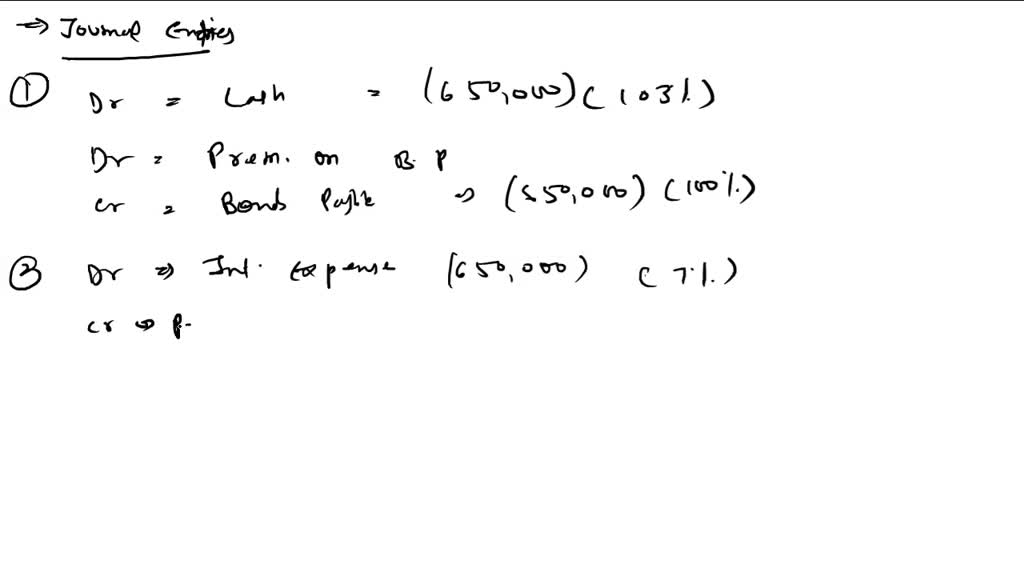 ⇒ Journal Entries
① Dr = Cash = (650,000) (103%)
Dr = Prem. on B.P
cr = Bonds Payble ⇒ (650,000) (100%)
② Dr ⇒ Int. Expense (650,000) (7%)
cr ⇒ P-